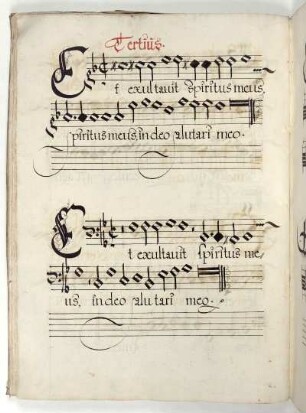 Tertius.
Et exultauit Spiritus meus
spiritus meus, in deo salutari meo.
Et exultauit spiritus me,
us, in deo salutari meo.